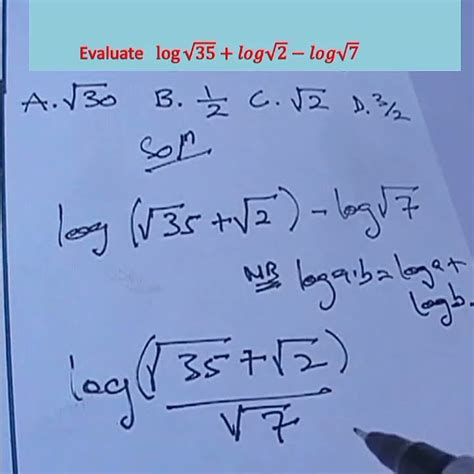 Evaluate log√35 + log√2 − log√7
A. √30 B. 1/2 C. √2 D. 3/2
Soln
log (√35 + √2) - log√7
NB log a·b = log a +
log b.
log (√35 + √2)
√7